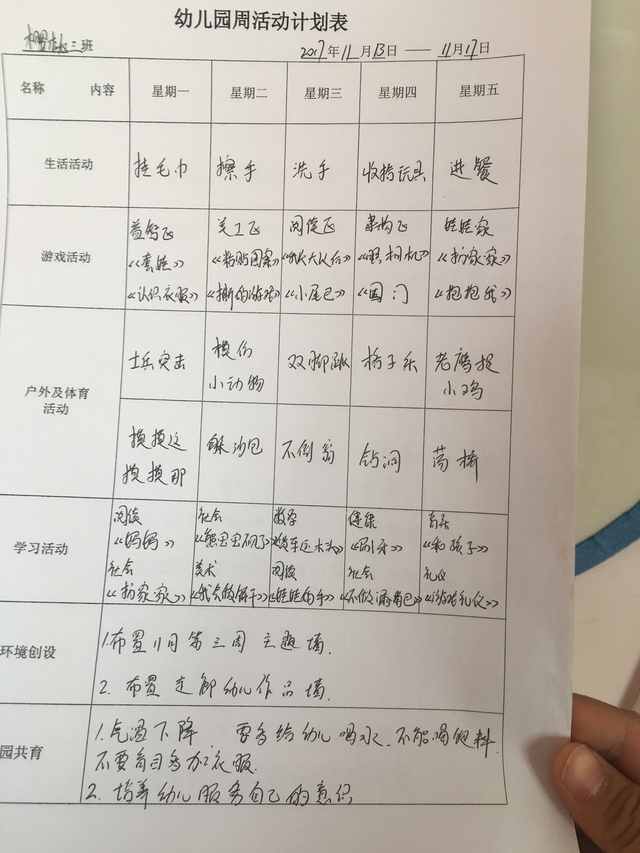 幼儿园周活动计划表
三班 2017年11月13日 — 11月17日
名称 内容 星期一 星期二 星期三 星期四 星期五
生活活动 挂毛巾 擦手 洗手 收拾玩具 进餐
益智区 美工区 阅读区 建构区 娃娃家
游戏活动 《套娃》 《粘贴图案》 《照相机》 《扮家家》
《认识衣服》 《撕的游戏》 《小尾巴》 《国门》 《抱抱我》
户外及体育活动 士兵突击 模仿小动物 双脚跳 扬子乐 老鹰捉小鸡
摸摸这摸摸那 躲沙包 不倒翁 钻洞 荡桥
阅读 社会 数学 健康 音乐
学习活动 《妈妈》 《刷牙》 《和孩子》
社会 美术 阅读 社会 礼仪
《扮家家》 《我会做饼干》 《娃娃的手》 《游戏礼仪》
环境创设 1.布置11月第三周主题墙.
2. 布置走廊幼儿作品墙.
园共育 1.气温下降. 要多给幼儿喝水.不能喝饮料.
不要盲目多加衣服.
2.培养幼儿服务自己的意识